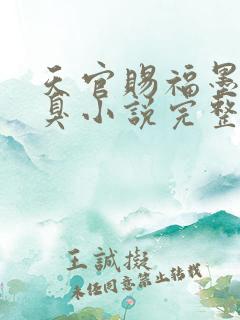 天官赐福墨
真小说完整
王誠擬
未经同意禁止转载